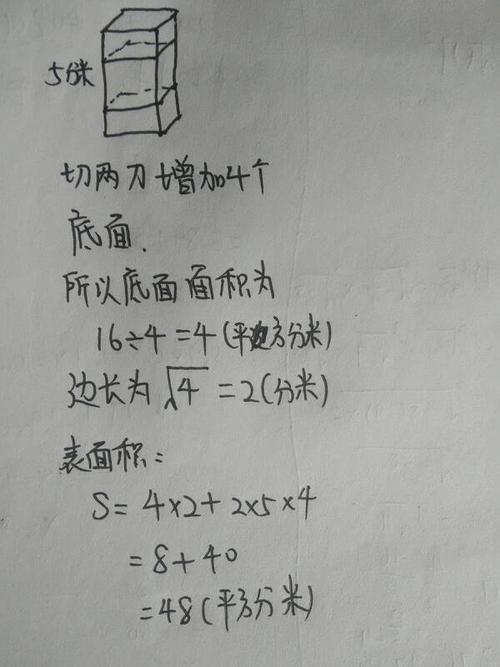 5分米
切两刀增加4个
底面.
所以底面面积为
16÷4=4(平方分米)
边长为√4=2(分米)
表面积:
S=4×2+2×5×4
=8+40
=48(平方分米)